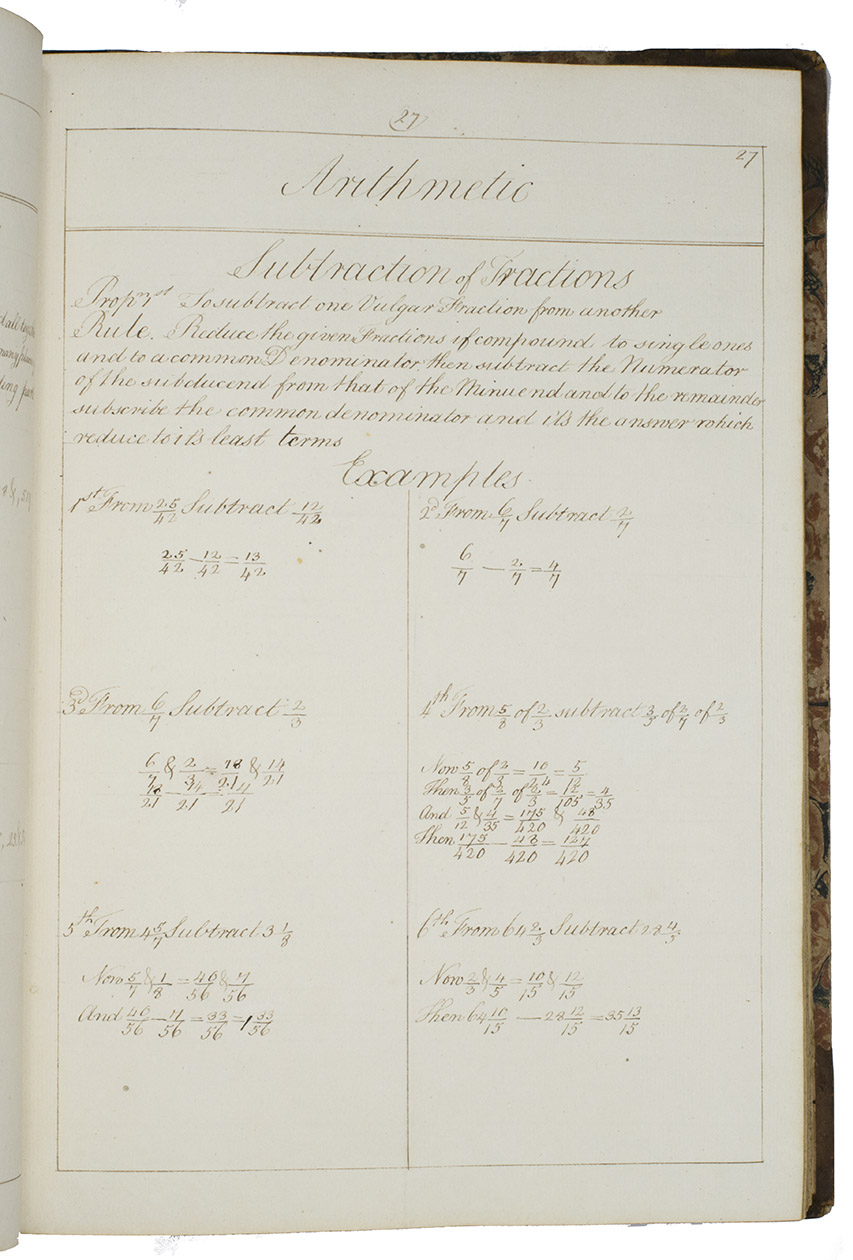 27
27
Arithmetic
Subtraction of Fractions
Prop.n 1st To subtract one Vulgar Fraction from another
Rule. Reduce the given Fractions if compound to single ones
and to a common Denominator, then subtract the Numerator
of the subducend from that of the Minuend and to the remainder
subscribe the common denominator and it's the answer which
reduce to it's least terms
Examples
1st From 25/42 Subtract 12/42
25/42 — 12/42 = 13/42
2d From 6/7 Subtract 2/7
6/7 — 2/7 = 4/7
3d From 6/7 Subtract 2/3
6/7 & 2/3 = 18/21 & 14/21
18/21 — 14/21 = 4/21
4th From 5/8 of 2/3 subtract 3/5 of 2/7 of 2/3
Now 5/8 of 2/3 = 10/24 = 5/12
Then 3/5 of 2/7 of 2/3 = 12/105 = 4/35
And 5/12 & 4/35 = 175/420 & 48/420
Then 175/420 — 48/420 = 127/420
5th From 4 5/7 Subtract 3 1/8
Now 5/7 & 1/8 = 40/56 & 7/56
And 40/56 — 7/56 = 33/56 = 1 33/56
6th From 64 2/3 Subtract 28 4/5
Now 2/3 & 4/5 = 10/15 & 12/15
Then 64 10/15 — 28 12/15 = 35 13/15